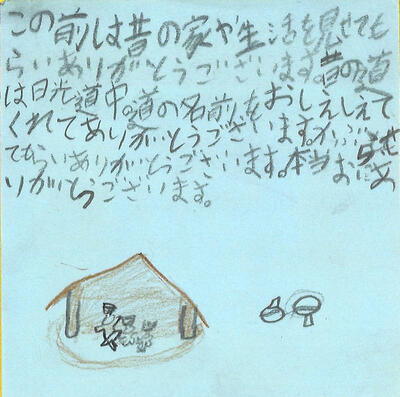 この前は昔の家や生活を見せても
らいありがとうございます。昔の道
は日光道中。道の名前をおしえしえて
くれてありがとうございます。かぶらせ
てもらいありがとうございます。本当にあ
りがとうございます。